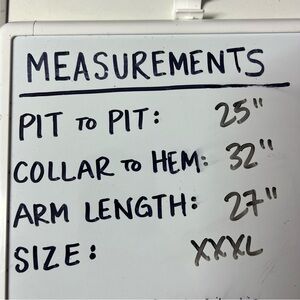 MEASUREMENTS
PIT TO PIT: 25"
COLLAR TO HEM: 32"
ARM LENGTH: 27"
SIZE: XXXL